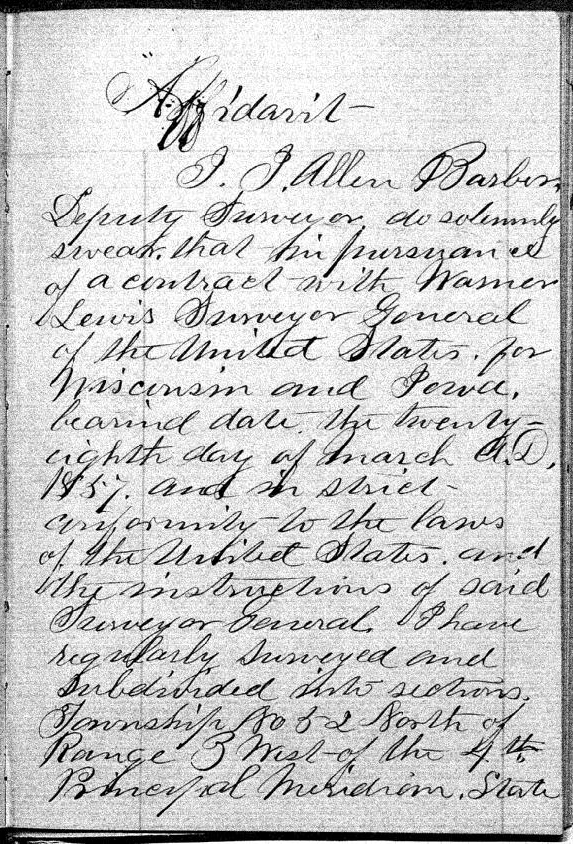 "Affidavit–
I. J. Allen Barber,
Deputy Surveyor, do solemnly
swear, that in pursuance
of a contract with Warner
Lewis Surveyor General
of the United States, for
Wisconsin and Iowa,
bearind date, the twenty–
eighth day of March A.D.
1857. and in strict–
conformity to the laws
of the United States, and
the instructions of said
Surveyor General, I have
regularly surveyed and
subdivided into sections,
Township No 52 North of
Range 3 West of the 4th
Principal Meridian, State